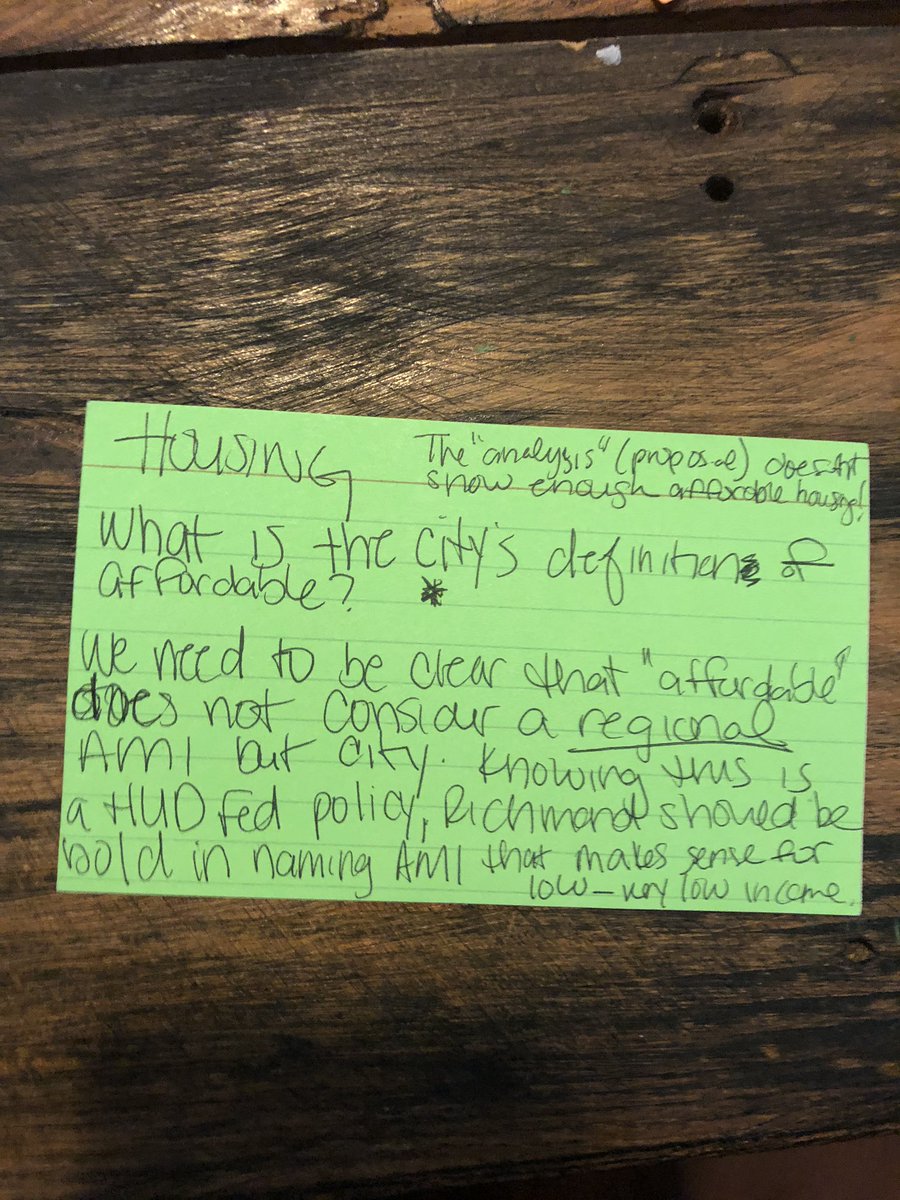 HOUSING
The "analysis" (proposal) doesn't
show enough affordable housing!
What is the city's definition of
affordable? *
We need to be clear that "affordable"
does not consider a regional
AMI but city. Knowing this is
a HUD fed policy, Richmond should be
bold in naming AMI that makes sense for
low-very low income.